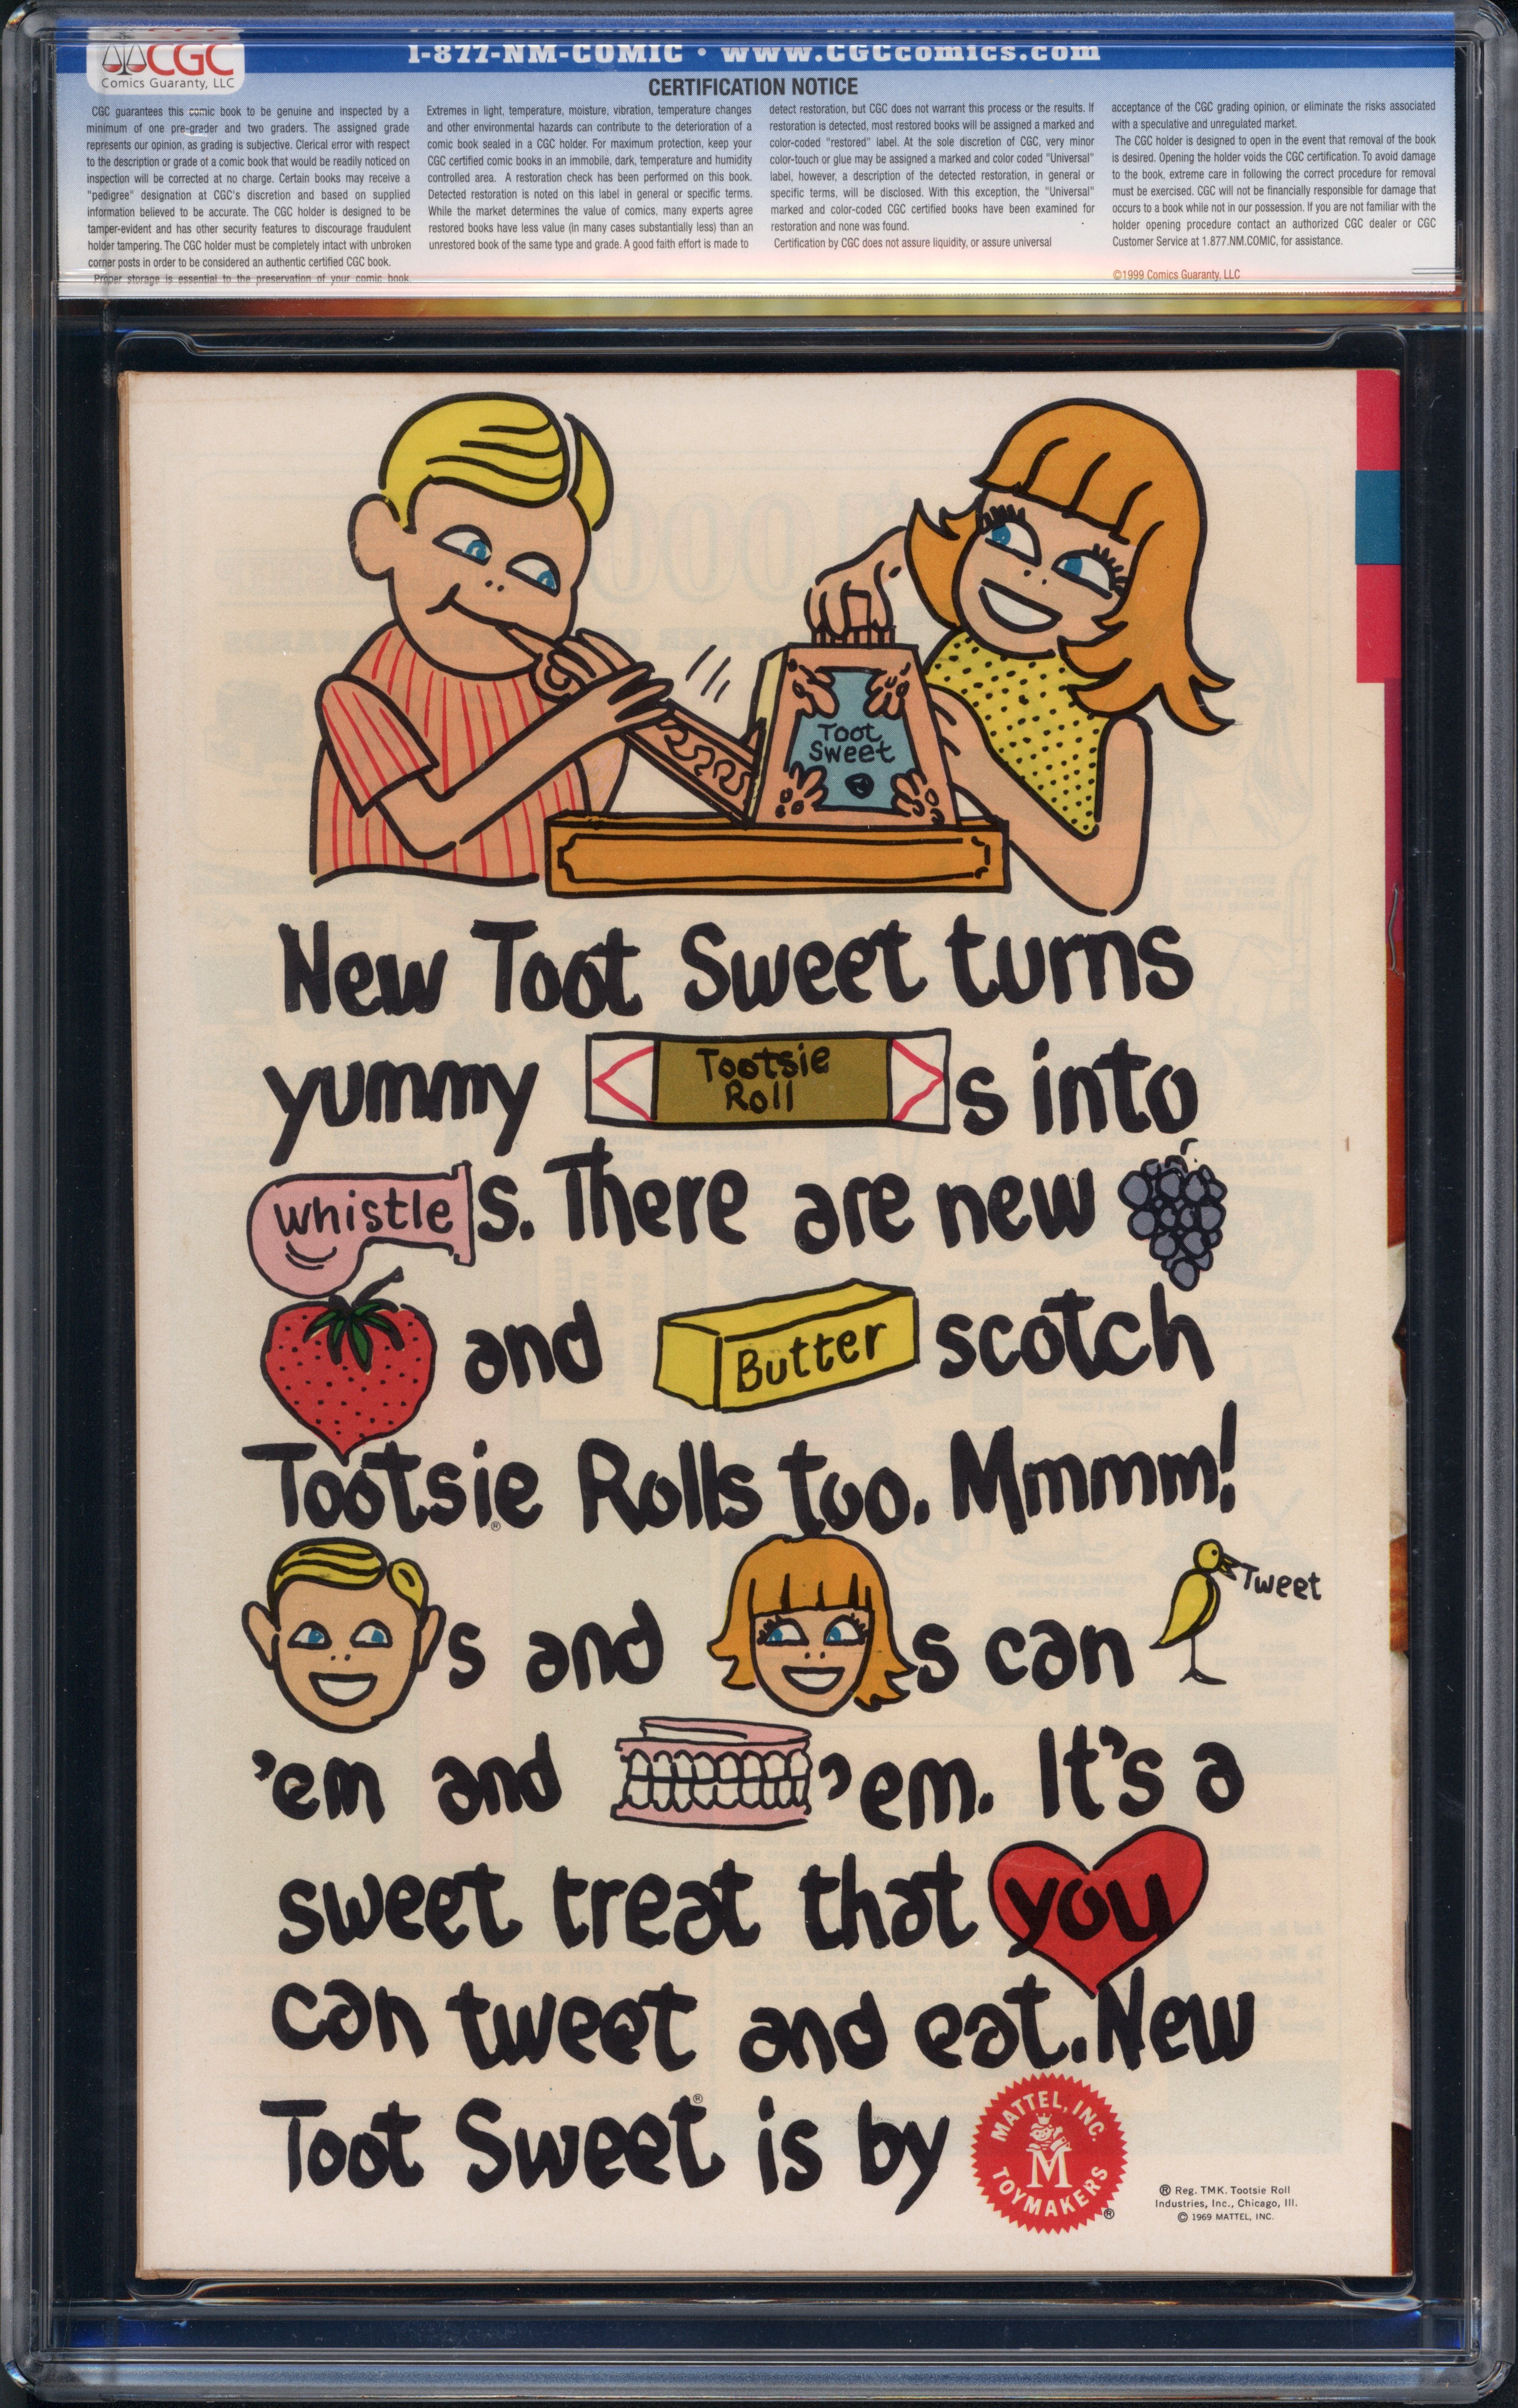 CGC
Comics Guaranty, LLC
1-877-NM-COMIC • www.CGCcomics.com
CERTIFICATION NOTICE
CGC guarantees this comic book to be genuine and inspected by a
minimum of one pre-grader and two graders. The assigned grade
represents our opinion, as grading is subjective. Clerical error with respect
to the description or grade of a comic book that would be readily noticed on
inspection will be corrected at no charge. Certain books may receive a
"pedigree" designation at CGC's discretion and based on supplied
information believed to be accurate. The CGC holder is designed to be
tamper-evident and has other security features to discourage fraudulent
holder tampering. The CGC holder must be completely intact with unbroken
corner posts in order to be considered an authentic certified CGC book.
Proper storage is essential to the preservation of your comic book.
Extremes in light, temperature, moisture, vibration, temperature changes
and other environmental hazards can contribute to the deterioration of a
comic book sealed in a CGC holder. For maximum protection, keep your
CGC certified comic books in an immobile, dark, temperature and humidity
controlled area. A restoration check has been performed on this book.
Detected restoration is noted on this label in general or specific terms.
While the market determines the value of comics, many experts agree
restored books have less value (in many cases substantially less) than an
unrestored book of the same type and grade. A good faith effort is made to
detect restoration, but CGC does not warrant this process or the results. If
restoration is detected, most restored books will be assigned a marked and
color-coded "restored" label. At the sole discretion of CGC, very minor
color-touch or glue may be assigned a marked and color coded "Universal"
label, however, a description of the detected restoration, in general or
specific terms, will be disclosed. With this exception, the "Universal"
marked and color-coded CGC certified books have been examined for
restoration and none was found.
Certification by CGC does not assure liquidity, or assure universal
acceptance of the CGC grading opinion, or eliminate the risks associated
with a speculative and unregulated market.
The CGC holder is designed to open in the event that removal of the book
is desired. Opening the holder voids the CGC certification. To avoid damage
to the book, extreme care in following the correct procedure for removal
must be exercised. CGC will not be financially responsible for damage that
occurs to a book while not in our possession. If you are not familiar with the
holder opening procedure contact an authorized CGC dealer or CGC
Customer Service at 1.877.NM.COMIC, for assistance.
©1999 Comics Guaranty, LLC
Toot
Sweet
New Toot Sweet turns
yummy Tootsie Roll s into
whistle s. There are new
and Butter scotch
Tootsie® Rolls too. Mmmm!
s and s can Tweet
'em and 'em. It's a
sweet treat that you
can tweet and eat. New
Toot Sweet® is by MATTEL, INC. M TOYMAKERS ®
® Reg. TMK. Tootsie Roll
Industries, Inc., Chicago, Ill.
© 1969 MATTEL, INC.